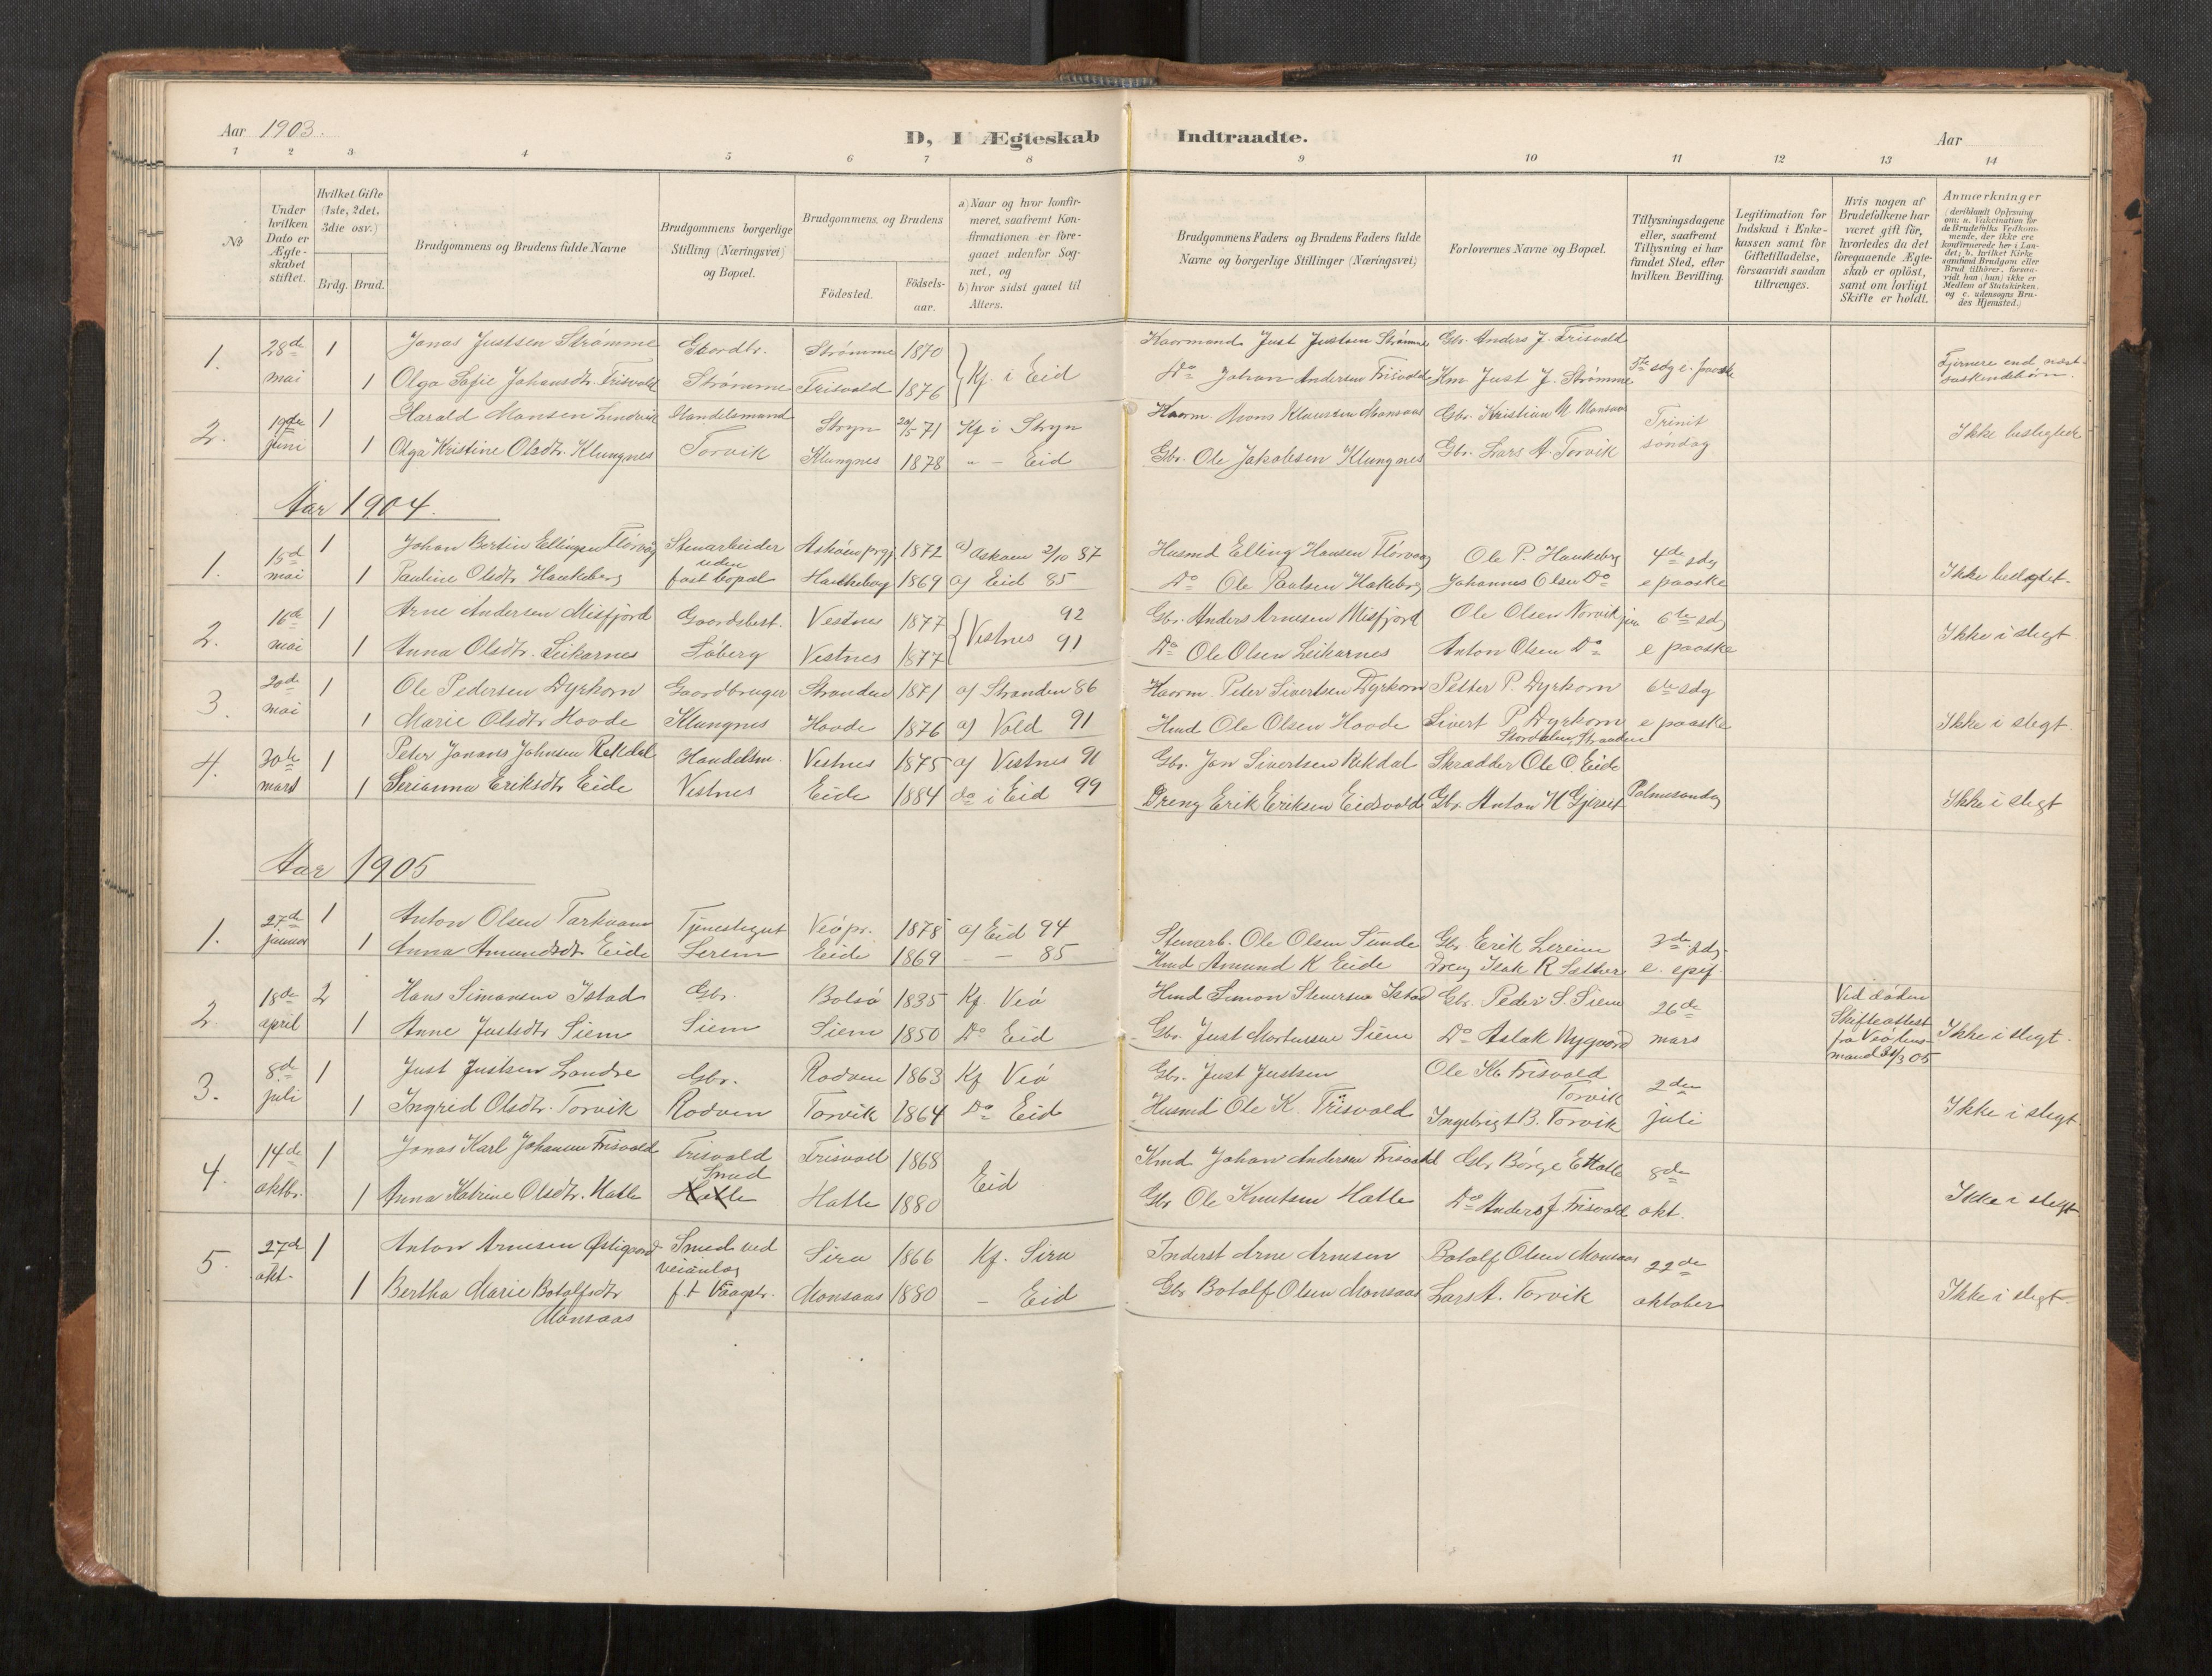 Aar 1903.
D, I Ægteskab Indtraadte.
Aar
1 2 3 4 5 6 7 8 9 10 11 12 13 14
No
Under hvilken Dato er Ægteskabet stiftet.
Hvilket Gifte (1ste, 2det, 3die osv.)
Brdg. Brud.
Brudgommens og Brudens fulde Navne
Brudgommens borgerlige Stilling (Næringsvei) og Bopæl.
Brudgommens og Brudens
Födested. Födsels-aar.
a) Naar og hvor konfirmeret, saafremt Konfirmationen er foregaaet udenfor Sognet, og
b) hvor sidst gaaet til Alters.
Brudgommens Faders og Brudens Faders fulde Navne og borgerlige Stillinger (Næringsvei)
Forlovernes Navne og Bopæl.
Tillysningsdagene eller, saafremt Tillysning ei har fundet Sted, efter hvilken Bevilling.
Legitimation for Indskud i Enkekassen samt for Giftetilladelse, forsaavidt saadan tiltrænges.
Hvis nogen af Brudefolkene har været gift för, hvorledes da det foregaaende Ægteskab er oplöst, samt om lovligt Skifte er holdt.
Anmærkninger
(deriblandt Oplysning om: a. Vakcination for de Brudefolks Vedkommende, der ikke ere konfirmerede her i Landet; b. hvilket Kirkesamfund Brudgom eller Brud tilhörer, forsaavidt han (hun) ikke er Medlem af Statskirken, og c. udensogns Brudes Hjemsted.)
1. 28de mai 1 Jonas Justsen Strømme Gaardbr. Strømme 1870 Kaarmand Just Justsen Strømme Gbr. Anders J. Frisvold
1 Olga Sofie Johansdtr. Frisvold Strømme Frisvold 1876 Kf. i Eid Do Johan Andersen Frisvold Km Just J. Strømme sdg e. paaske Fjernere end næstsøskendebørn.
2. 19de juni 1 Harald Monsen Handelsmand Stryn 20/5 71 Kf i Stryn Kaarm. Mons Klausen Monsaas Gbr. Kristian M. Monsaas Trinit søndag
1 Olga Kristine Olsdtr. Klungnes Torvik Klungnes 1878 " - Eid Gbr. Ole Jakobsen Klungnes Gbr. Lars A. Torvik Ikke beslegtede
Aar 1904.
1. 15d mai 1 Johan Bertin Ellingsen Flørvåg Stenarbeider uden Askøen prgj 1872 a) Askøen 2/10 87 Husmd Elling Hansen Flørvaag Ole P. Haukeberg 4de sdg
1 Pauline Olsdtr. Haukeberg fast bopæl Haukeberg 1869 a) Eid 85 Do Ole Paulsen Hakeberg Johannes Olsen Do e paaske Ikke beslegtet.
2. 16de mai 1 Arne Andersen Misfjord Gaardsbest. Vestnes 1877 92 Gbr. Anders Arnesen Misfjord Ole Olsen Norvik jun 6te sdg
1 Anna Olsdtr. Leikarnes Søberg Vestnes 1877 Vestnes 91 Do Ole Olsen Leikarnes Anton Olsen Do e paaske Ikke i slegt
3. 20de mai 1 Ole Pedersen Dyrkorn Gaardbruger Stranden 1871 a) Stranden 86 Kaarm. Peter Sivertsen Dyrkorn Petter P. Dyrkorn 6te sdg
1 Marie Olsdtr. Hovde Klungnes Hovde 1876 a) Vold 91 Hmd Ole Olsen Hovde Sivert P. Dyrkorn e paaske Ikke i slegt
Stordalen, Stranden
4. 30te mars 1 Peter Jonanus Johnsen Rekdal Handelsm. Vestnes 1875 a) Vestnes 91 Gbr. Jon Sivertsen Rekdal Skrædder Ole O. Eide
1 Serianna Eriksdtr Eide Vestnes Eide 1884 do i Eid 99 Dreng Erik Eriksen Eidsvold Gbr. Anton H Gjerset Palmesøndag Ikke i slegt
Aar 1905
1. 27de januar 1 Anton Olsen Tarkvam Tjenestegut Veø pr. 1878 a) Eid 94 Stenarb. Ole Olsen Sunde Gbr. Erik Lereim 3de sdg
1 Anna Amundsdtr. Eide Lerem Eide 1869 - - 85 Hmd Amund K Eide Dreng Isak R Sather e. epif.
2. 18de april 2 Hans Simonsen Istad Gbr. Bolsø 1835 Kf. Veø Hmd Simon Stenersen Istad Gbr. Peder S. Siem 26de Ved døden
1 Anne Justsdtr Siem Siem Siem 1850 Do Eid Gbr. Just Mortensen Siem Do Aslak Nygaard mars Skifteattest fra Veø lensmand 31/3 05 Ikke i slegt.
3. 8de juli 1 Just Justsen Landre Gbr. Rødven 1863 Kf Veø Gbr. Just Justsen Ole Kb Frisvold Torvik 2den
1 Ingrid Olsdtr. Torvik Rødven Torvik 1864 Do Eid Husmd Ole K. Frisvold Ingebrigt B. Torvik juli Ikke i slegt.
4. 14de oktbr. 1 Jonas Karl Johansen Frisvold Frisvold Smed Frisvold 1868 Kmd Johan Andersen Frisvold Gbr Børge E Hatle 8de
1 Anna Katrine Olsdtr. Hatle Hatle Hatle 1880 Eid Gbr Ole Knutsen Hatle Do Anders J. Frisvold okt. Ikke i slegt
5. 27de okt. 1 Anton Arnesen Østigaard Smed ved veianlæg Sira 1866 Kf. Sira Inderst Arne Arnesen Botolf Olsen Monsaas 22de
1 Bertha Marie Botolfsdtr Monsaas f.t. Vaagstr. Monsaas 1880 - Eid Gbr Botolf Olsen Monsaas Lars A. Torvik oktober Ikke i slegt